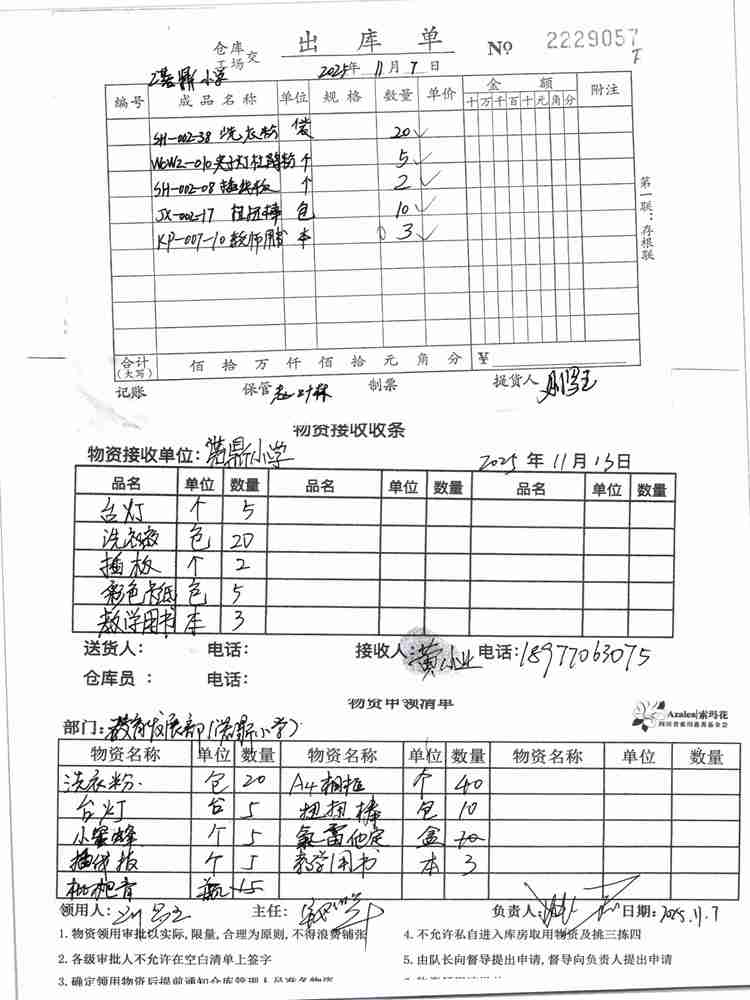 仓库
工场 交 出库单 № 2229057
鼎小学 2025年 11月 7日
编号 成品名称 单位 规格 数量 单价 金额 附注
十万千百十元角分
SH-002-38 洗衣粉 袋 20✓
个 5✓
SH-002-08 插线板 个 2✓
JX-002-17 扭扭棒 包 10✓
KP-007-10 教师用书 本 3✓
第一联：存根联
合计（大写） 佰 拾 万 仟 佰 拾 元 角 分 ¥
记账 保管 制票 提货人
物资接收收条
物资接收单位: 鼎小学 2025年11月13日
品名 单位 数量 品名 单位 数量 品名 单位 数量
台灯 个 5
洗衣液 包 20
插板 个 2
彩色卡纸 包 5
教学用书 本 3
送货人： 电话： 接收人: 黄小业 电话: 18977063075
仓库员 ： 电话：
物资申领清单
Azalea|索玛花
部门: 教育发展部(鼎小学)
物资名称 单位 数量 物资名称 单位 数量 物资名称 单位 数量
洗衣粉 包 20 A4相框 个 40
台灯 台 5 扭扭棒 包 10
小蜜蜂 个 5 氯雷他定 盒
插线板 个 5 教学用书 本 3
枇杷膏 瓶 15
领用人: 主任: 负责人: 日期: 2025.11.7
1. 物资领用审批以实际,限量,合理为原则,不得浪费铺张 4. 不允许私自进入库房取用物资及挑三拣四
2. 各级审批人不允许在空白清单上签字 5. 由队长向督导提出申请,督导向负责人提出申请
3. 确定领用物资后提前通知仓库管理人员准备物资